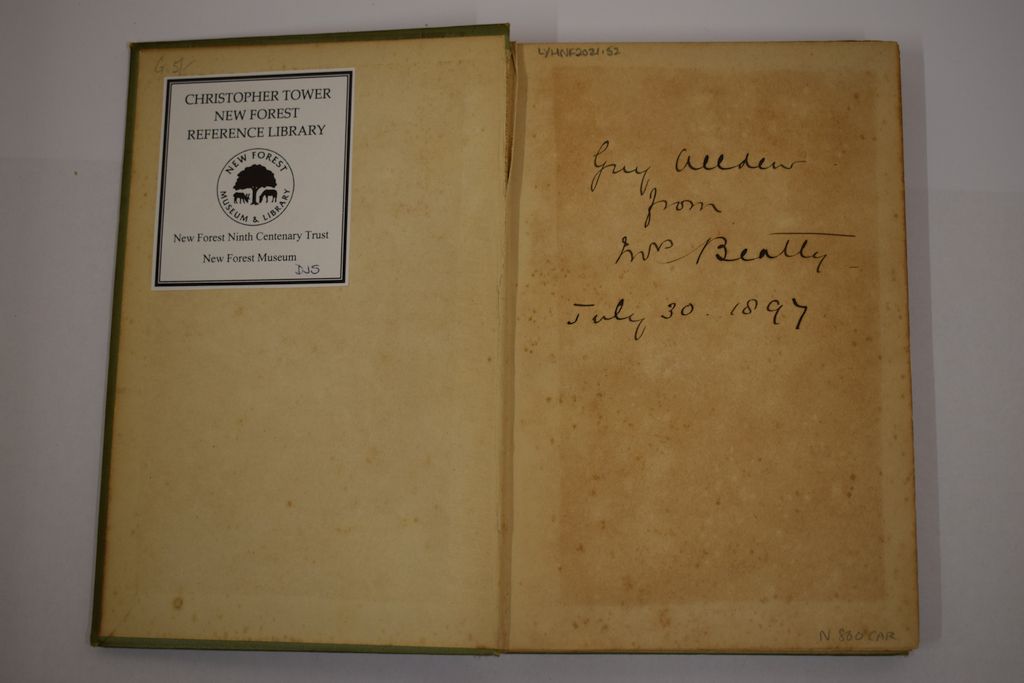 G.5/
CHRISTOPHER TOWER
NEW FOREST
REFERENCE LIBRARY
NEW FOREST
MUSEUM & LIBRARY
New Forest Ninth Centenary Trust
New Forest Museum
DJS
LYHNF2021.52
Guy
from
Mrs Beatty
July 30. 1897
N. 800 CAR